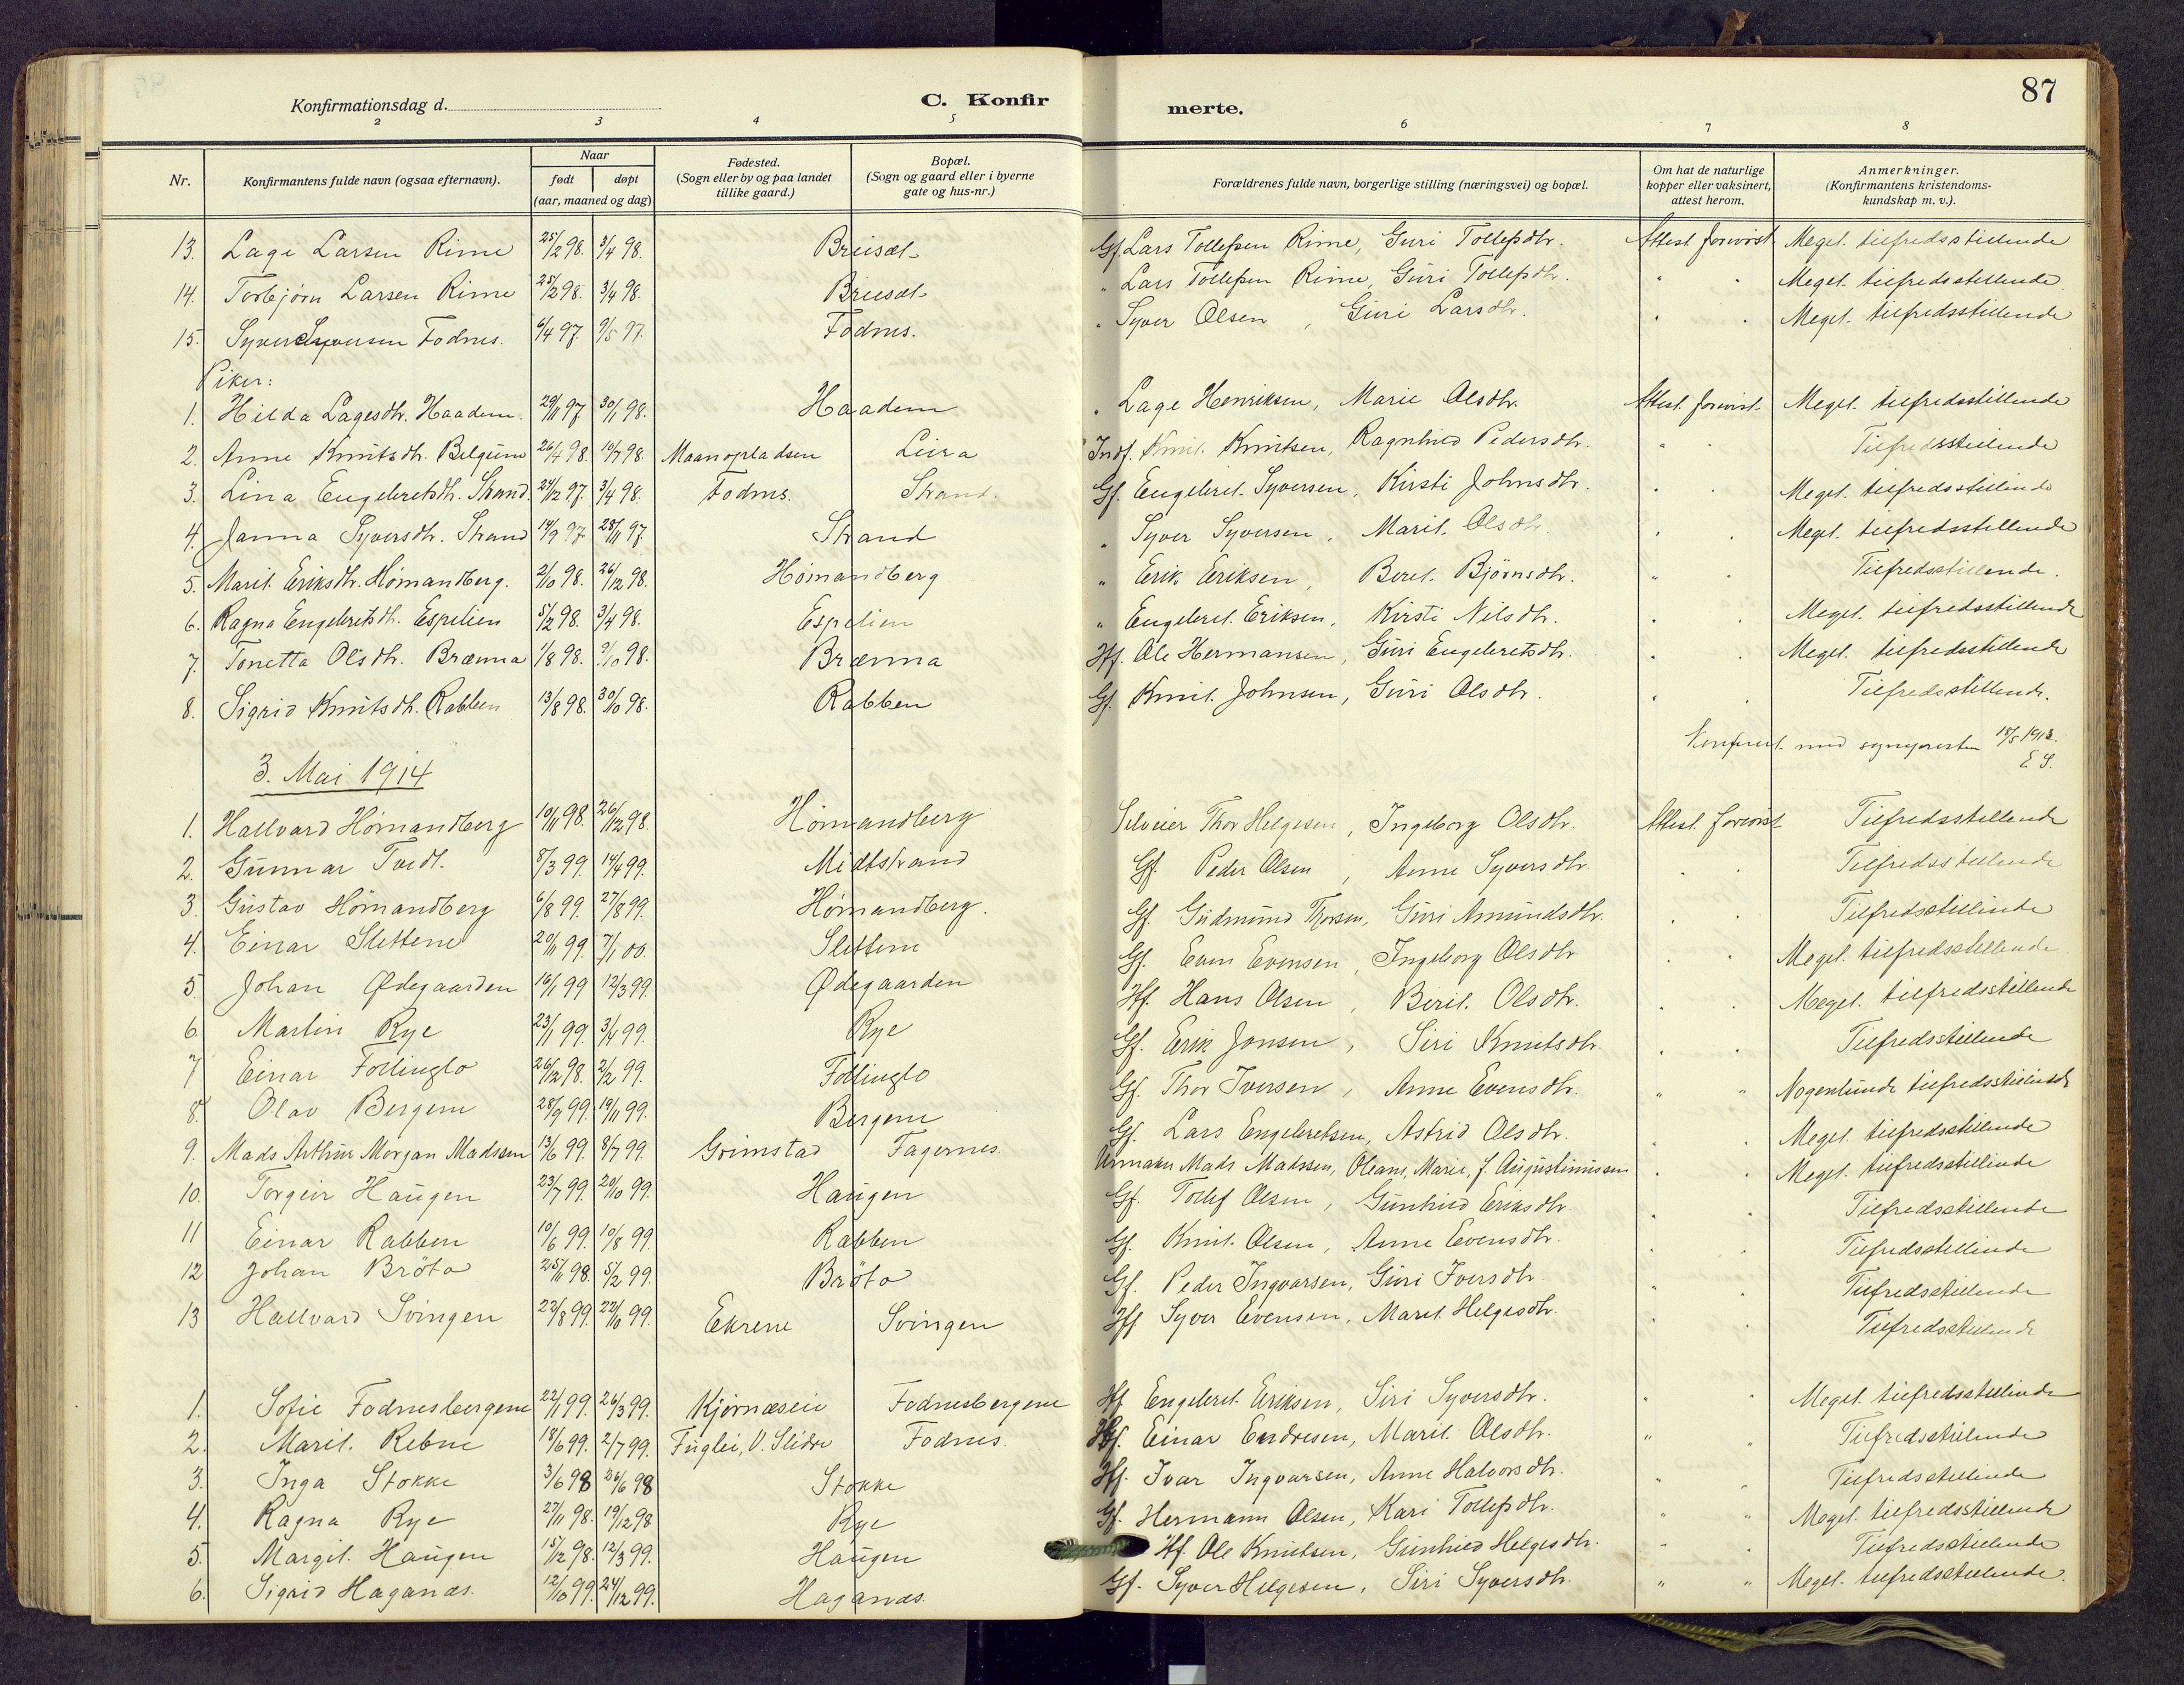 87
Konfirmationsdag d. C. Konfir merte.
2 3 4 5 6 7 8
Nr. Konfirmantens fulde navn (ogsaa efternavn). Naar født døpt (aar, maaned og dag) Fødested. (Sogn eller by og paa landet tillike gaard.) Bopæl. (Sogn og gaard eller i byerne gate og hus-nr.) Forældrenes fulde navn, borgerlige stilling (næringsvei) og bopæl. Om hat de naturlige kopper eller vaksinert, attest herom. Anmerkninger. (Konfirmantens kristendoms-kundskap m. v.).
13. Lage Larsen Rime 25/2 98. 3/4 98. Breisæt Gf. Lars Tollefsen Rime, Guri Tollefsdtr. Attest forevist Meget tilfredsstillende
14. Torbjørn Larsen Rime 25/2 98. 3/4 98. Breisæt " Lars Tollefsen Rime, Guri Tollefsdtr. " " Meget tilfredsstillende
15. Syver Syversen Fodnes. 6/4 97. 9/5 97. Fodnes. " Syver Olsen, Guri Larsdtr. " " Meget tilfredsstillende
Piker:
1. Hilda Lagesdtr. Haadem. 29/11 97 30/1 98. Haadem " Lage Henriksen, Marie Olsdtr. Attest forevist Meget tilfredsstillende
2. Anne Knutsdtr. Belgum 26/4 98. 10/7 98. Maanopladsen Leira Inds. Knut Knutsen, Ragnhild Pedersdtr. " Tilfredsstillende
3. Lina Engebretsdtr. Strand 24/12 97. 3/4 98. Fodnes. Strand. Gf. Engebret Syversen, Kirsti Johnsdtr. " " Meget tilfredsstillende
4. Janna Syversdtr. Strand 14/9 97 28/11 97. Strand " Syver Syversen, Marit Olsdtr. " " Meget tilfredsstillende
5. Marit Eriksdtr. Hömandberg. 2/10 98. 26/12 98. Hömandberg " Erik Eriksen, Beret Björnsdtr. " " Tilfredsstillende.
6. Ragna Engebretsdtr. Espelien 5/2 98. 3/4 98. Espelien " Engebret Eriksen, Kirsti Nilsdtr. " " Meget tilfredsstillende
7. Tonetta Olsdtr. Brænna 1/8 98. 9/10 98. Brænna Hf. Ole Hermansen, Guri Engebretsdtr. " " Meget tilfredsstillende
8. Sigrid Knutsdtr. Rabben 13/8 98. 30/10 98. Rabben Gf. Knut Johnsen, Guri Olsdtr. " " Tilfredsstillende.
Konferert med sognepresten 18/5 1913.
E S.
3. Mai 1914
1. Hallvard Hömandberg 10/11 98. 26/12 98. Hömandberg Selveier Thor Helgesen, Ingeborg Olsdtr. Attest forevist Tilfredsstillende
2. Gunnar Tvedt. 8/3 99. 14/4 99. Midtstrand Gf. Peder Olsen, Anne Syversdtr. " " Tilfredsstillende
3. Gustav Hömandberg 6/8 99. 27/8 99. Hömandberg. Gf. Gudmund Thorsen, Guri Amundsdtr. " " Tilfredsstillende
4. Einar Slettene 20/11 99. 7/1 00. Slettene Gf. Even Evensen, Ingeborg Olsdtr " " Meget tilfredsstillende
5 Johan Ødegaarden 16/1 99 12/3 99. Ødegaarden Hf. Hans Olsen, Berit Olsdtr. " " Meget tilfredsstillende
6. Martin Rye 23/1 99. 3/4 99. Rye Gf. Erik Jonsen, Siri Knutsdtr. " " Tilfredsstillende
7 Einar Follinglo 26/12 98. 2/2 99. Follinglo Gf. Thor Iversen, Anne Evensdtr. " " Nogenlunde tilfredsstillende
8. Olav Bergene 28/9 99. 19/11 99. Bergene Gf. Lars Engebretsen, Astrid Olsdtr. " " Meget tilfredsstillende
9. Mads Arthur Morgan Madssen 13/6 99. 8/7 99. Grimstad Fagernes. Urmaker Mads Madssen, Oleane Marie, f. Augustinussen " " Meget tilfredsstillende
10. Torgeir Haugen 23/7 99. 20/10 99. Haugen Gf. Tollef Olsen, Gunhild Eriksdtr. " " Tilfredsstillende
11 Einar Rabben 10/6 99. 10/8 99. Rabben Gf. Knut Olsen, Anne Evensdtr. " " Tilfredsstillende
12 Johan Bröto 25/11 98. 5/2 99. Bröto Gf. Peder Ingvarsen, Guri Iversdtr. " " Tilfredsstillende
13 Hallvard Svingen 22/8 99. 22/10 99. Ekrene Svingen Hf. Syver Evensen, Marit Helgesdtr. " " Tilfredsstillende
1. Sofie Fodnesbergene 22/1 99. 26/3 99. Kjörnæseie Fodnesbergene Hf Engebret Eriksen, Siri Syversdtr. " " Meget tilfredsstillende
2. Marit Rebne 18/6 99. 2/7 99. Fuglei, V. Slidre Fodnes. Hf. Einar Endresen, Marit Olsdtr. " " Tilfredsstillende
3. Inga Stokke 3/6 98 26/6 98 Stokke Hf. Ivar Ingvarsen, Anne Halvorsdtr. " " Tilfredsstillende
4. Ragna Rye 27/11 98. 19/12 98 Rye Gf. Hermann Olsen, Kari Tollefsdtr. " " Meget tilfredsstillende
5. Margit Haugen 15/12 98. 12/3 99. Haugen Hf. Ole Knutsen, Gunhild Helgesdtr. " " Tilfredsstillende
6. Sigrid Haganæs. 12/10 99. 24/12 99. Haganæs. Gf. Syver Helgesen, Siri Syversdtr. " " Meget tilfredsstillende.